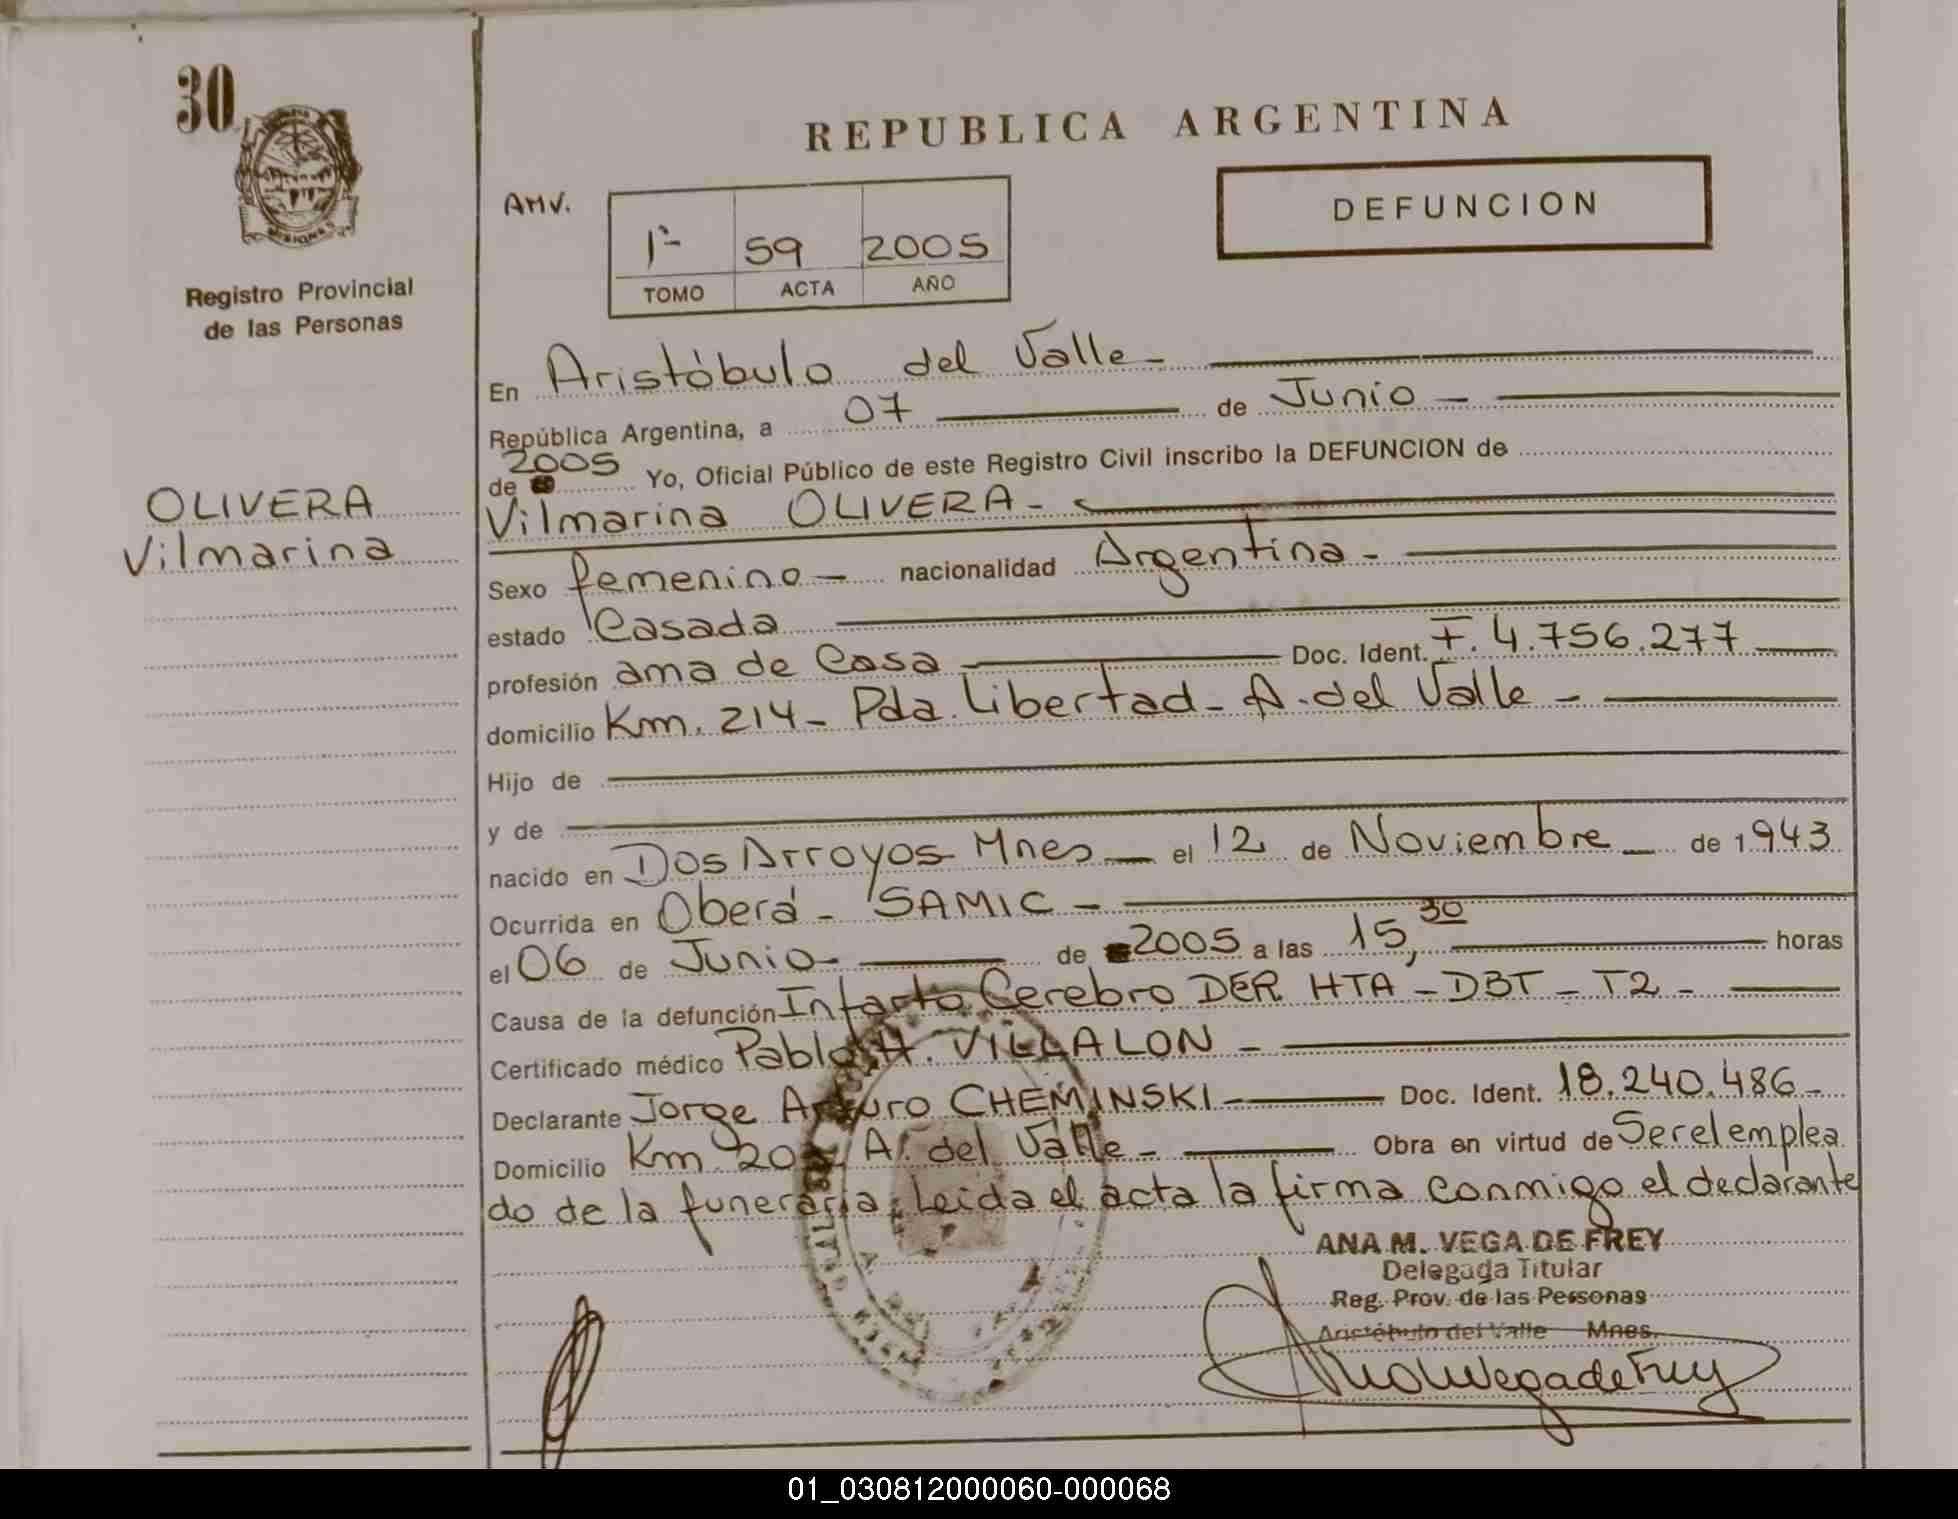 30
MISIONES
Registro Provincial
de las Personas
OLIVERA
Vilmarina
REPUBLICA ARGENTINA
AMV.
1º- 59 2005
TOMO ACTA AÑO
DEFUNCION
En Aristóbulo del Valle-
República Argentina, a 07 de Junio -
de 2005 Yo, Oficial Público de este Registro Civil inscribo la DEFUNCION de
Vilmarina OLIVERA-
Sexo femenino - nacionalidad Argentina -
estado Casada
profesión ama de Casa Doc. Ident. F. 4.756.277
domicilio Km. 214- Pda. Libertad- A. del Valle -
Hijo de
y de
nacido en Dos Arroyos- Mnes el 12 de Noviembre de 1943
Ocurrida en Oberá - SAMIC -
el 06 de Junio- de 2005 a las 15,30 horas
Causa de la defunción Infarto Cerebro DER HTA - DBT - T2 -
Certificado médico Pablo H. VILLALON -
Declarante Jorge Arturo CHEMINSKI - Doc. Ident. 18.240.486-
Domicilio Km A. del Valle - Obra en virtud de Ser el emplea
do de la funeraria; Leida el acta la firma conmigo el declarante
ANA M. VEGA DE FREY
Delegada Titular
Reg. Prov. de las Personas
Aristóbulo del Valle Mnes.
01_030812000060-000068